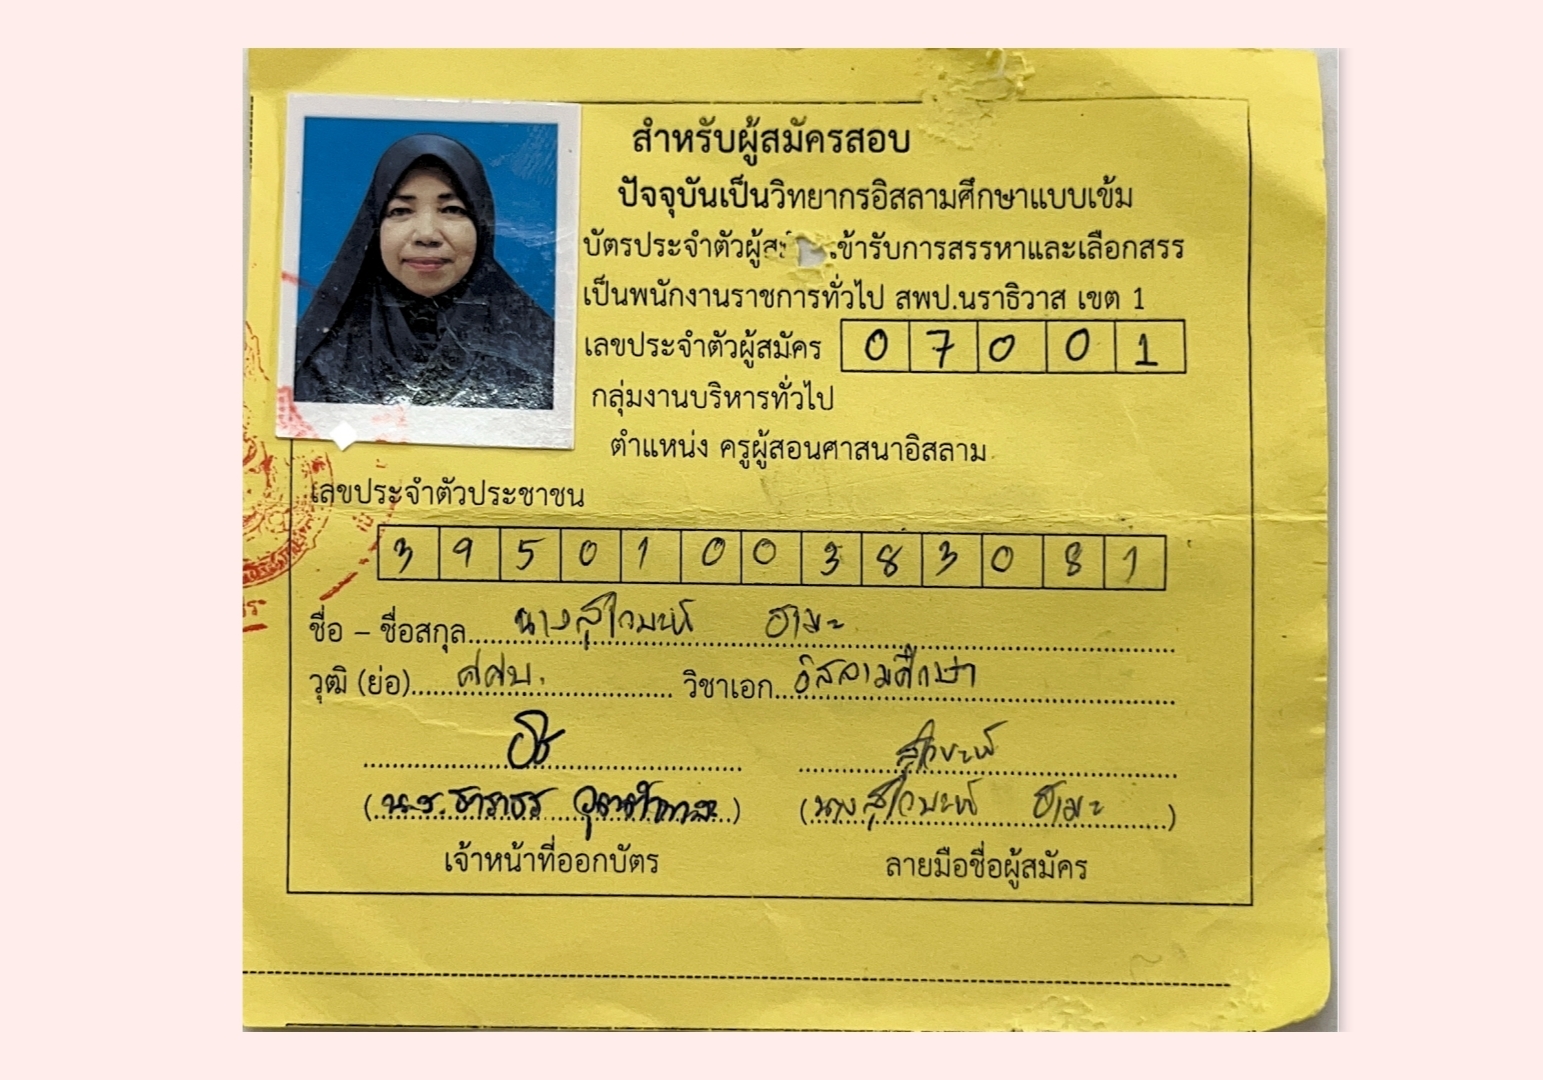 สำหรับผู้สมัครสอบ
ปัจจุบันเป็นวิทยากรอิสลามศึกษาแบบเข้ม
บัตรประจำตัวผู้ส เข้ารับการสรรหาและเลือกสรร
เป็นพนักงานราชการทั่วไป สพป.นราธิวาส เขต 1
เลขประจำตัวผู้สมัคร 0 7 0 0 1
กลุ่มงานบริหารทั่วไป
ตำแหน่ง ครูผู้สอนศาสนาอิสลาม
เลขประจำตัวประชาชน
3 9 5 0 1 0 0 3 8 3 0 8 1
ชื่อ – ชื่อสกุล นางสุไวบะห์ ฮามะ
วุฒิ (ย่อ) ศศบ. วิชาเอก อิสลามศึกษา
(นางสุไวบะห์ ฮามะ)
เจ้าหน้าที่ออกบัตร ลายมือชื่อผู้สมัคร